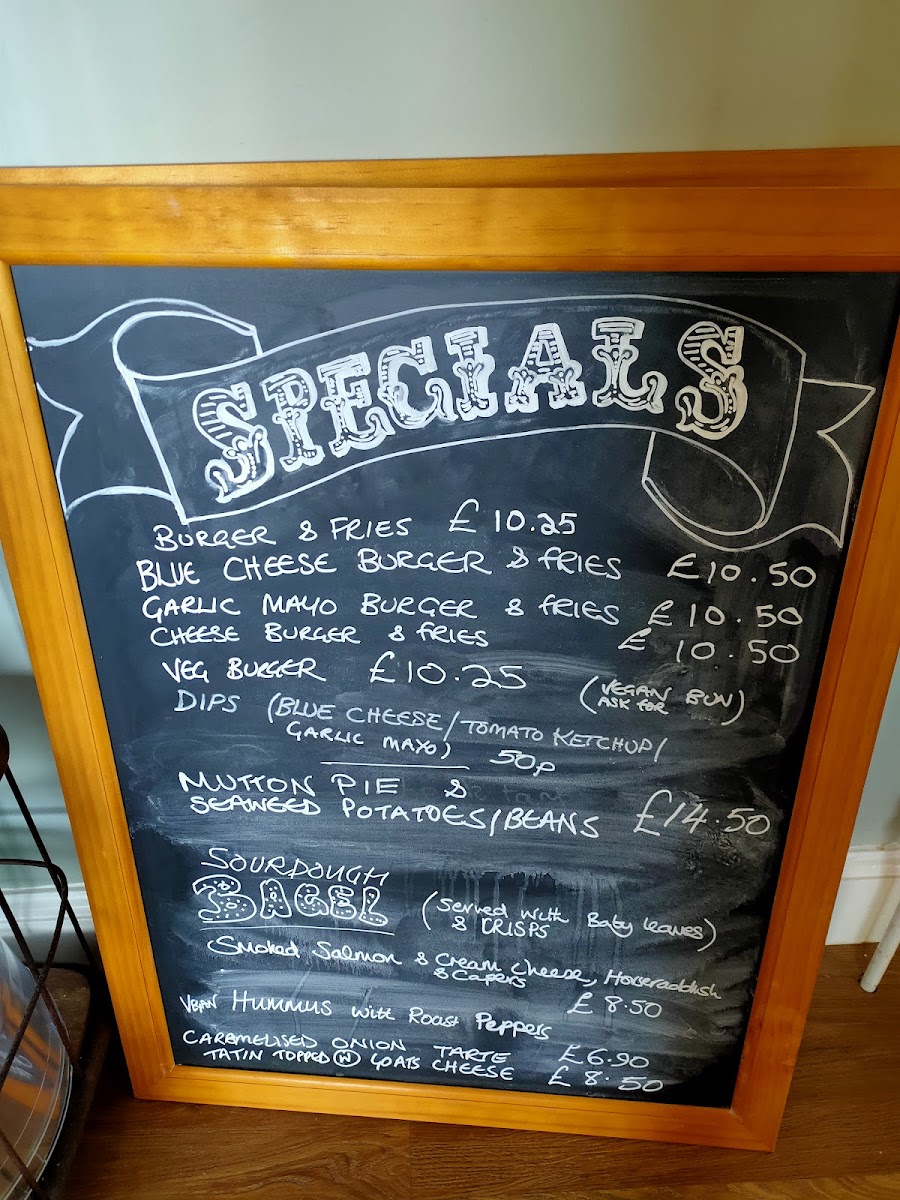 SPECIALS
BURGER & FRIES £10.25
BLUE CHEESE BURGER & FRIES £10.50
GARLIC MAYO BURGER & FRIES £10.50
CHEESE BURGER & FRIES £10.50
VEG BURGER £10.25 (VEGAN BUN
ASK FOR)
DIPS (BLUE CHEESE/TOMATO KETCHUP/
GARLIC MAYO) 50p
MUTTON PIE &
SEAWEED POTATOES/BEANS £14.50
SOURDOUGH
BAGEL (Served with Baby leaves)
& CRISPS
Smoked Salmon & Cream Cheese, Horseraddish
& Capers £8.50
VEGAN HUMMUS with Roast Peppers
£6.90
CARAMELISED ONION TARTE
TATIN TOPPED W GOATS CHEESE £8.50